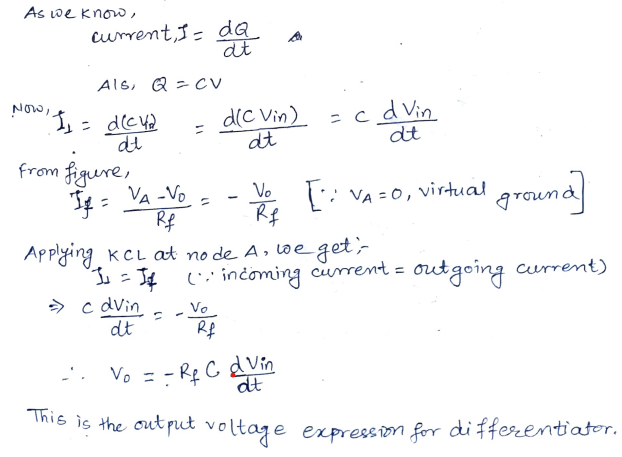 As we know,
current, I = dQ/dt
Als, Q = CV
Now, I₁ = d(CV₁)/dt = d(C Vin)/dt = C d Vin/dt
From figure,
If = (VA - Vo)/Rf = - Vo/Rf [∵ VA = 0, virtual ground]
Applying KCL at node A, we get :-
I₁ = If (∵ incoming current = outgoing current)
⇒ C dVin/dt = - Vo/Rf
∴ Vo = - Rf C d Vin/dt
This is the output voltage expression for differentiator.